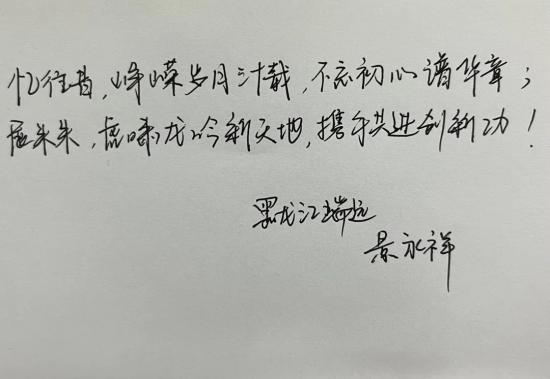 忆往昔,峥嵘岁月卅载,不忘初心谱华章;
展未来,虎啸龙吟新天地,携手共进创新功!
黑龙江瑞远
景永祥